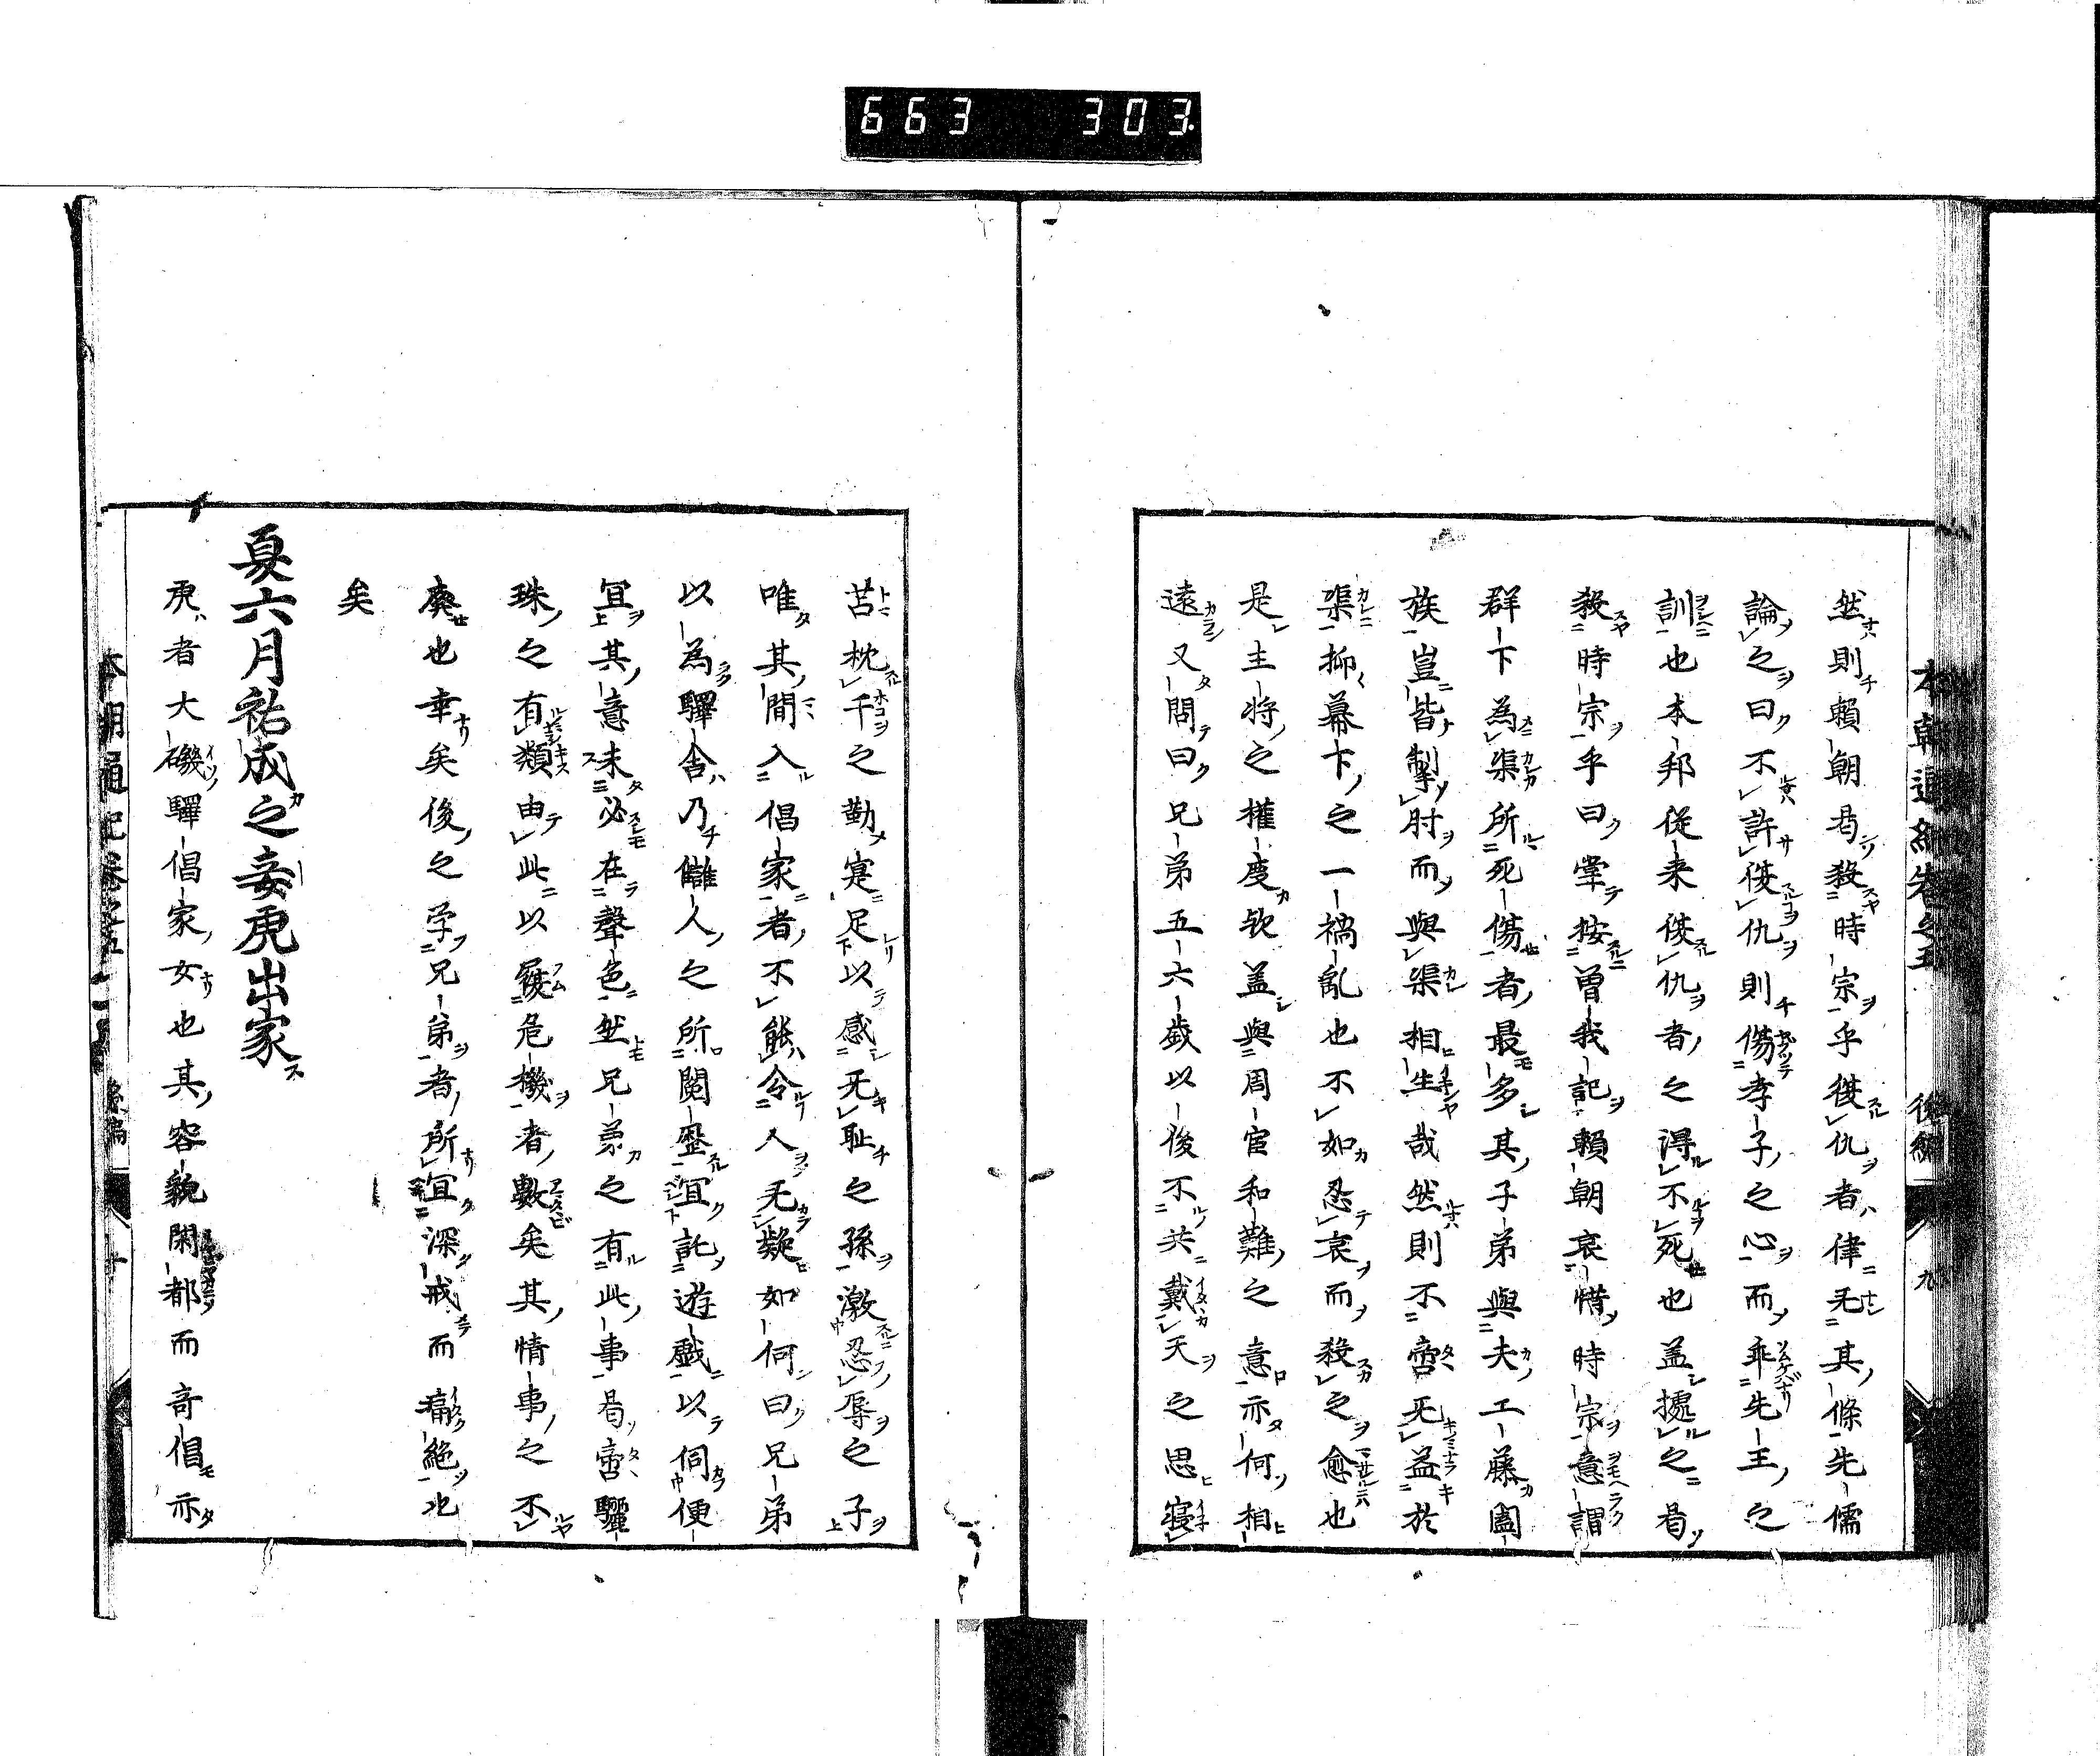 663 303
本朝通紀卷之五 後編 九
然則賴朝曷殺時宗乎復仇者律无其條先儒
論之曰不許復仇則傷孝子之心而乖先王之
訓也本邦從来復仇者之得不死也盖據之曷
殺時宗乎曰掌按曽我記賴朝哀惜時宗意謂
群下為渠所死傷者最多其子弟與夫工藤闔
族豈皆掣肘而與渠相生哉然則不啻无益於
渠抑幕下之一禍乱也不如忍哀而殺之愈也
是主将之權度欤盖與周官和難之意亦何相
遠又問曰兄弟五六歳以後不共戴天之思寝
苫枕干之勤寔足以感无耻之孫激忍辱之子
唯其間入倡家者不能令人无疑如何曰兄弟
以為驛舎乃讎人之所閲歴宜託遊戯以伺便
宜其意未必在聲色然兄弟之有此事曷啻驪
珠之有類由此以履危機者數矣其情事之不
廃也幸矣後之学兄弟者所宜深戒而痛絶也
矣
夏六月祐成之妾虎出家
虎者大磯驛倡家女也其容貌閑都而奇倡亦
本朝通紀卷之五 後編 十